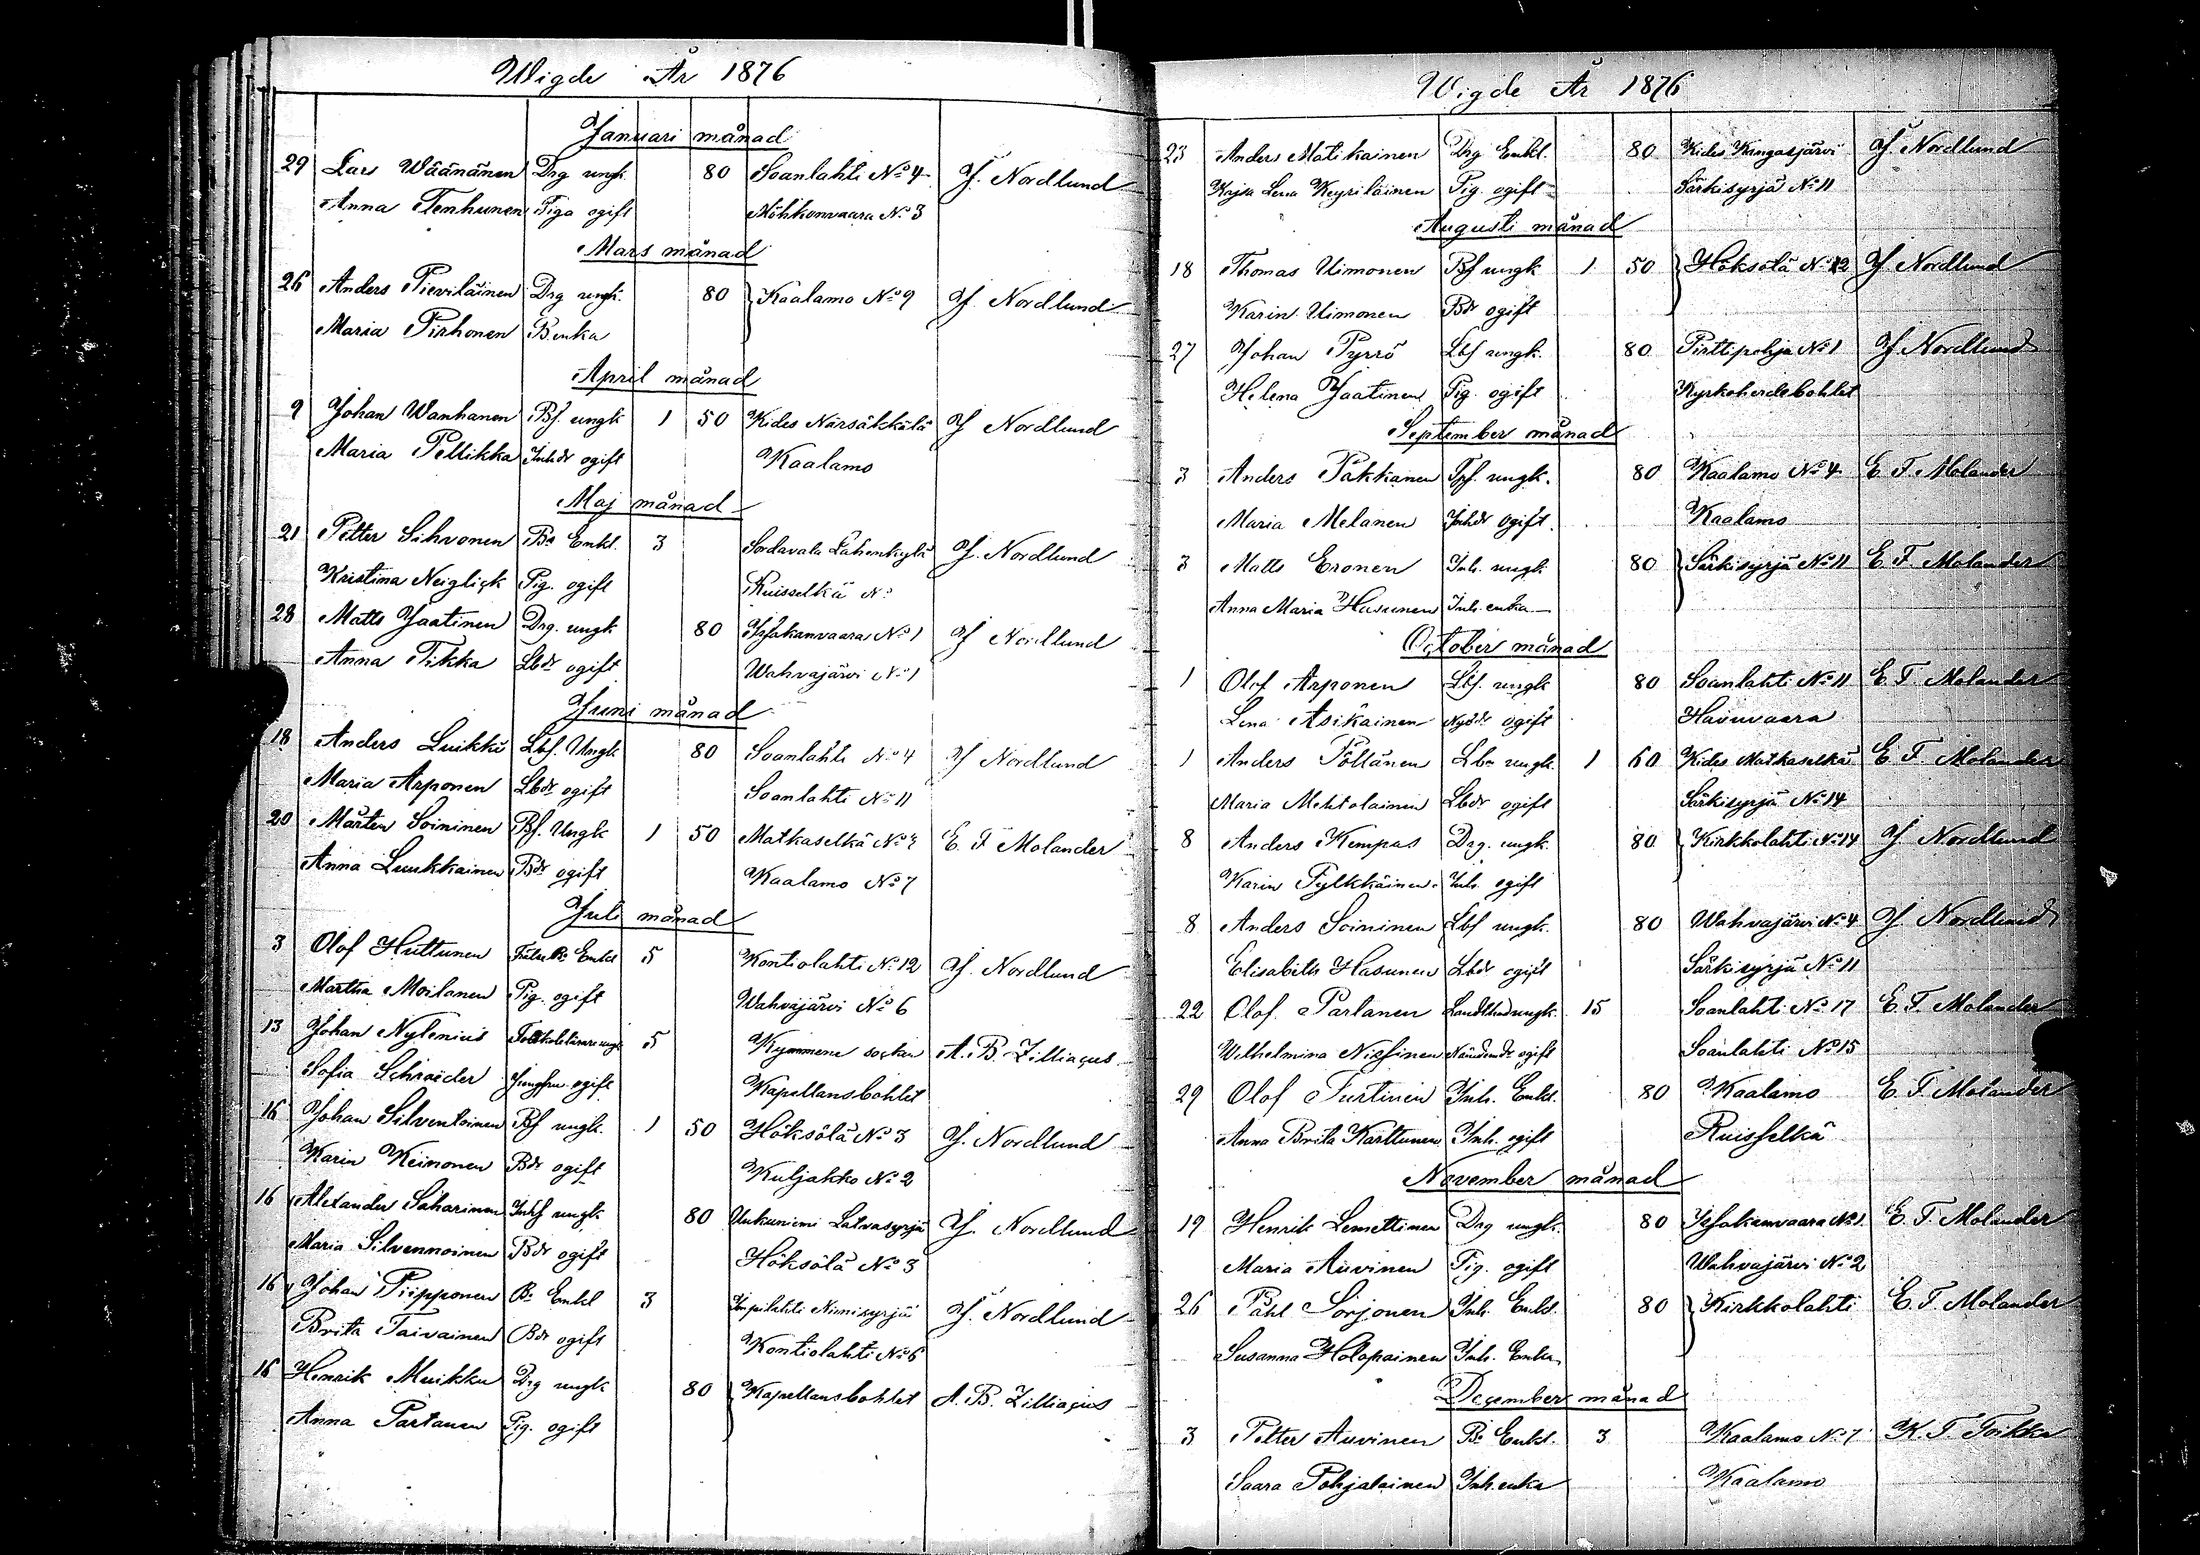 Wigde År 1876
Januari månad
29 Lars Wäänänen Drg ungk. 80 Soanlahti No 4 J. Nordlund
Anna Tenhunen Piga ogift Möhkonvaara No 3
Mars månad
26 Anders Pieviläinen Drg ungk. 80 Kaalamo No 9 J. Nordlund
Maria Pirhonen B.enka
April månad
9 Johan Wanhanen Bf. ungk 1 50 Kides Närsäkkälä J Nordlund
Maria Pellikka Inhdr ogift Kaalamo
Maj månad
21 Petter Sihvonen Be Enkl. 3 Sordavala Lahenkylä J. Nordlund
Kristina Neiglick Pig. ogift Ruisselkä No
28 Matts Jaatinen Drg. ungk 80 Issakanvaara No 1 J Nordlund
Anna Tikka Lbdr ogift Wahvajärvi No 1
Juni månad
18 Anders Luikku Lbf. Ungk 80 Soanlahti No 4 J Nordlund
Maria Arponen Lbdr ogift Soanlahti No 11
20 Mårten Soininen Bf. Ungk 1 50 Matkaselkä No E. F Molander
Anna Luukkainen Bdr ogift Kaalamo No 7
Juli månad
3 Olof Huttunen Enkl 5 Kontiolahti No 12 J. Nordlund
Martha Moilanen Pig. ogift Wahvajärvi No 6
13 Johan Nylenius Folkskolelärare ungk 5 Kymmene socken A. B. Zilliacus
Sofia Schraider Jungfru ogift Kapellansbohlet
16 Johan Silventoinen Bf ungk. 1 50 Höksölä No 3 J. Nordlund
Karin Keinonen Bdr ogift Kuljakko No 2
16 Alexander Saharinen Inhf ungk 80 Uukuniemi Latvasyrjä J. Nordlund
Maria Silvennoinen Bdr ogift Höksölä No 3
16 Johan Piipponen Be Enkl 3 Impilahti Nimisyrjä J. Nordlund
Brita Taivainen Bdr ogift Kontiolahti No 6
16 Henrik Muikku Drg ungk 80 Kapellansbohlet A. B. Zilliacus
Anna Partanen Pig. ogift
Wigde År 1876
23 Anders Matikainen Drg Enkl. 80 Kides Kangasjärvi J. Nordlund
Kajsa Lena Keyriläinen Pig. ogift Särkisyrjä No 11
Augusti månad
18 Thomas Uimonen Bf ungk 1 50 Höksölä No 12 J Nordlund
Karin Uimonen Bdr ogift
27 Johan Pyrrö Lbf ungk. 80 Pirttipohja No 1 J Nordlund
Helena Jaatinen Pig. ogift Kyrkoherdebohlet
September månad
3 Anders Pakkanen Tpf. ungk. 80 Kaalamo No 4 E F. Molander
Maria Melanen Inhdr ogift. Kaalamo
3 Matts Eronen Inh. ungk 80 Särkisyrjä No 11 E F. Molander
Anna Maria Hasunen Inh. enka
October månad
1 Olof Arponen Lbf. ungk 80 Soanlahti No 11 E. F. Molander
Lena Asikainen ogift Havuvaara
1 Anders Pöllänen Lbe ungk. 1 60 Kides Matkaselkä E F. Molander
Maria Mehtolainen Lbdr ogift Särkisyrjä No 14
8 Anders Kempas Drg. ungk. 80 Kirkkolahti No 14 J Nordlund
Karin Pylkkäinen Inh. ogift
8 Anders Soininen Lbf ungk. 80 Wahvajärvi No 4 J. Nordlund
Elisabeth Hasunen Lbdr ogift Särkisyrjä No 11
22 Olof Parlanen ungk. 15 Soanlahti No 17 E. F. Molander
Wilhelmina Nissinen ogift Soanlahti No 15
29 Olof Turtinen Inh. Enkl. 80 Kaalamo E. F. Molander
Anna Brita Karttunen Inh. ogift Ruisselkä
November månad
19 Henrik Lemettinen Drg ungk. 80 Issakanvaara No 1 E. F. Molander
Maria Auvinen Pig. ogift Wahvajärvi No 2
26 Påhl Sorjonen Inh. Enkl. 80 Kirkkolahti E. F. Molander
Susanna Holopainen Inh. Enka
December månad
3 Petter Auvinen Be Enkl. 3 Kaalamo No 7 K. F. Toikka
Saara Pohjalainen Inh.enka Kaalamo